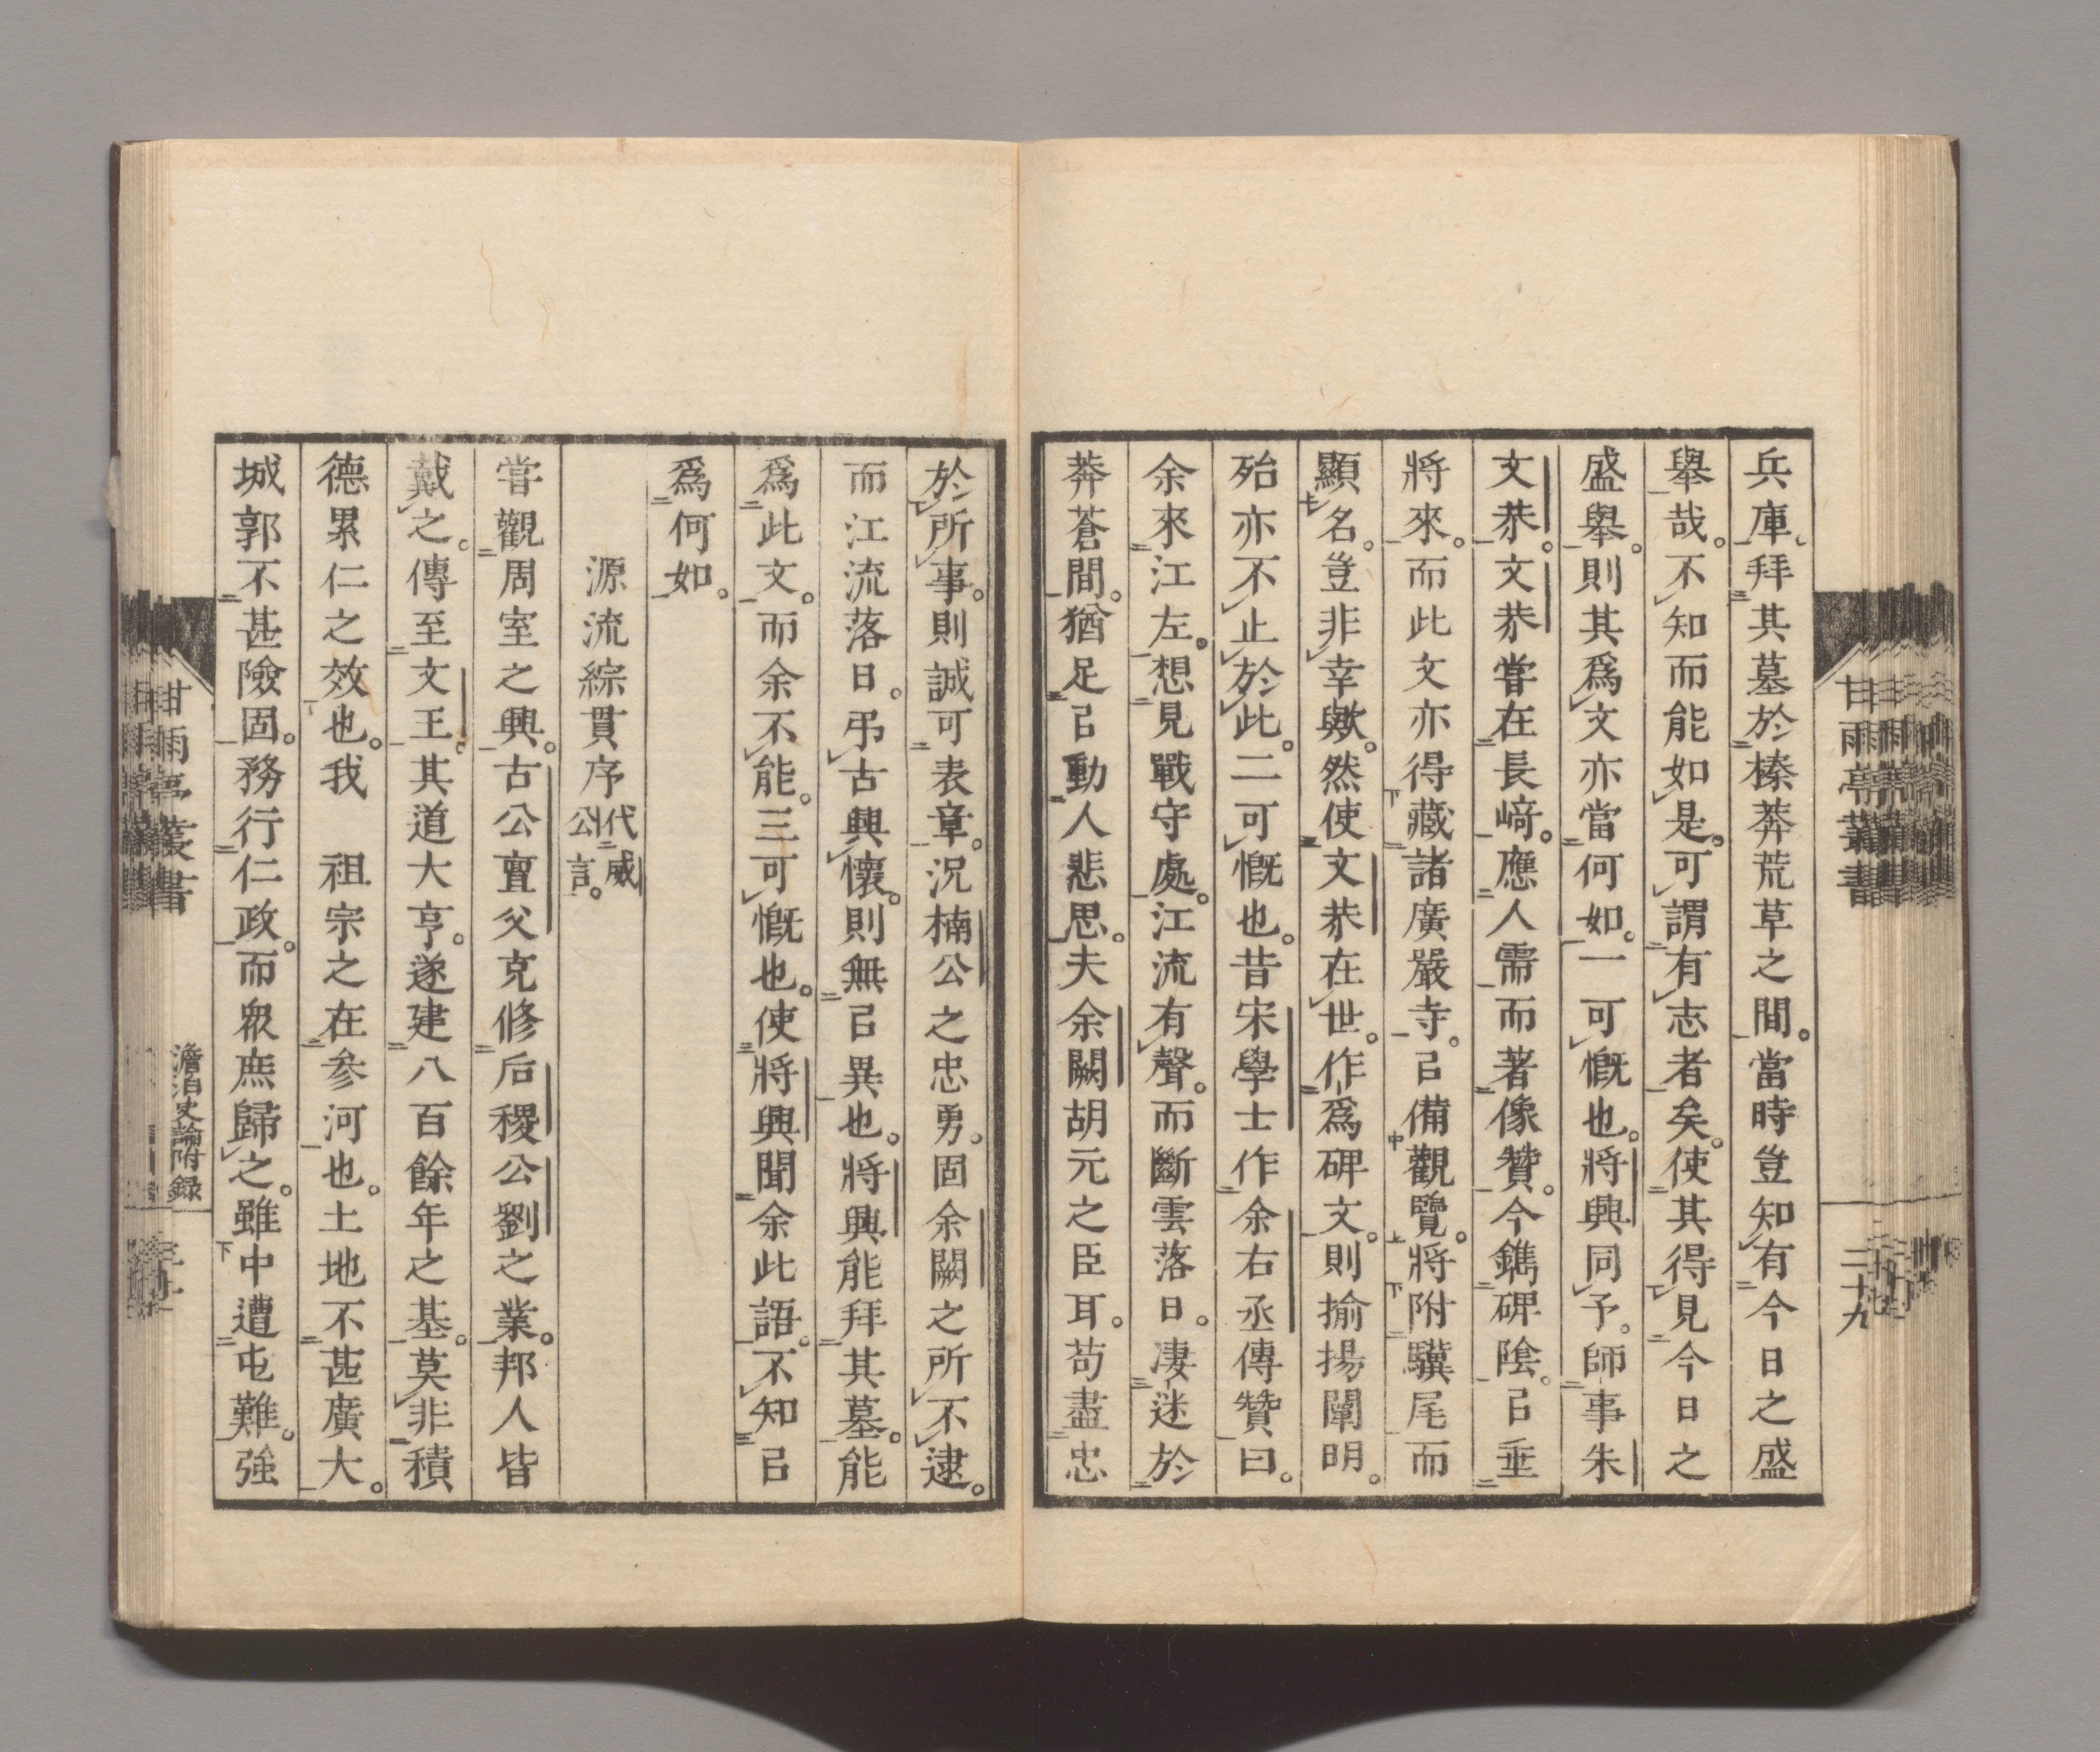 兵庫。拜其墓於榛莽荒草之間。當時豈知有今日之盛
舉哉。不知而能如是。可謂有志者矣。使其得見今日之
盛舉。則其爲文亦當何如。一可慨也。將興同予。師事朱
文恭。文恭嘗在長﨑。應人需而著像贊。今鐫碑陰。㠯垂
將來。而此文亦得藏諸廣嚴寺。㠯備觀覽。將附驥尾而
顯名。豈非幸歟。然使文恭在世。作爲碑文。則揄揚闡明。
殆亦不止於此。二可慨也。昔宋學士作余右丞傳贊曰。
余來江左。想見戰守處。江流有聲。而斷雲落日。凄迷於
莽蒼間。猶足㠯動人悲思。夫余闕胡元之臣耳。苟盡忠
甘雨亭叢書
二十九
於所事。則誠可表章。況楠公之忠勇。固余闕之所不逮。
而江流落日。弔古興懷。則無㠯異也。將興能拜其墓。能
爲此文。而余不能。三可慨也。使將興聞余此語。不知㠯
爲何如。
源流綜貫序 代威公言。
嘗觀周室之興。古公亶父克修后稷公劉之業。邦人皆
戴之。傳至文王。其道大亨。遂建八百餘年之基。莫非積
德累仁之效也。我 祖宗之在參河也。土地不甚廣大。
城郭不甚險固。務行仁政。而眾庶歸之。雖中遭屯難。強
甘雨亭叢書
澹泊史論附錄